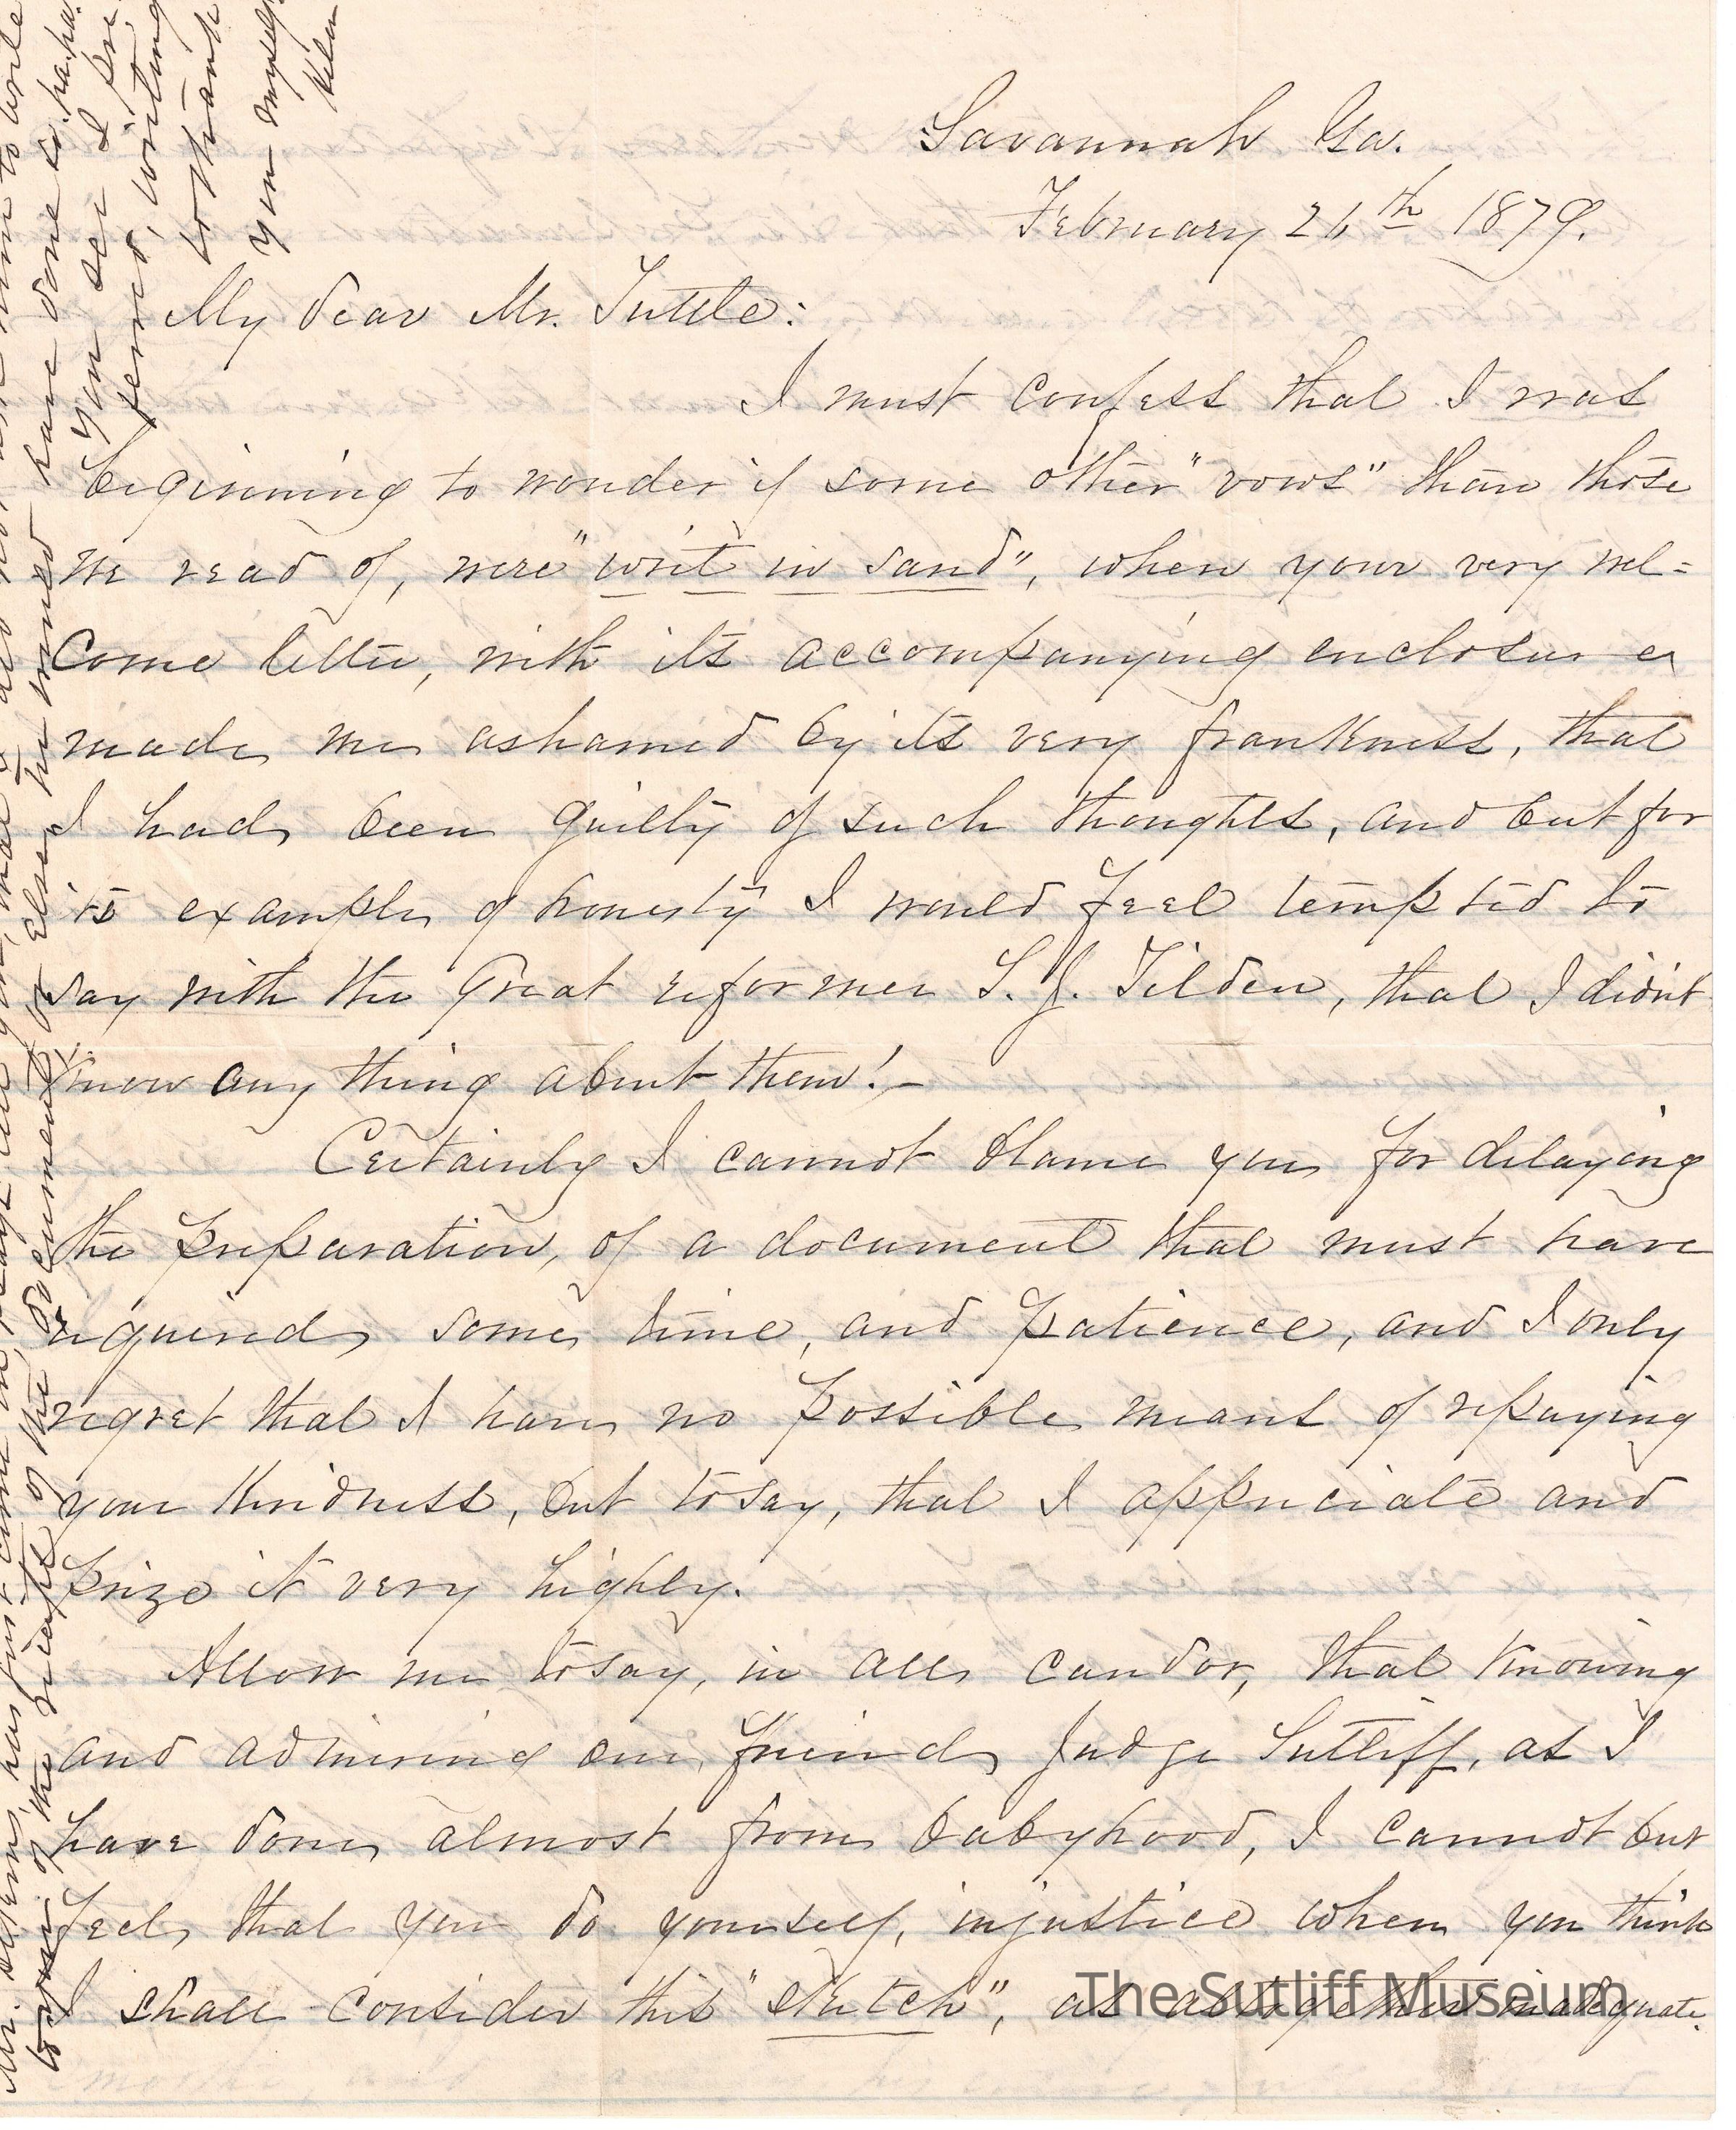 Savannah Ga.
February 26th 1879.
My dear Mr. Tuttle:
I must confess that I was
beginning to wonder if some other "vows" than those
we read of, were "writ in sand", when your very wel=
come letter, with its accompanying enclosure
made me ashamed by its very frankness, that
I had been guilty of such thoughts, and but for
its example of honesty I would feel tempted to
say with the Great reformer S. J. Tilden, that I didn't
know any thing about them! -
Certainly I cannot blame you for delaying
the preparation, of a document that must have
required some time, and patience, and I only
regret that I have no possible means of repaying
your kindness, but to say, that I appreciate and
prize it very highly.
Allow me to say, in all candor, that knowing
and admiring our friend Judge Sutliff, as I
have done almost from babyhood, I cannot but
feel that you do yourself, injustice when you think
I shall consider this "sketch", as altogether inadequate.
The Sutliff Museum
Mr. has just came in,
to you of the receipt of the document, or Elsen he would have done so. ha. ha.
You see I pre
ferred, writing
to thank
you myself